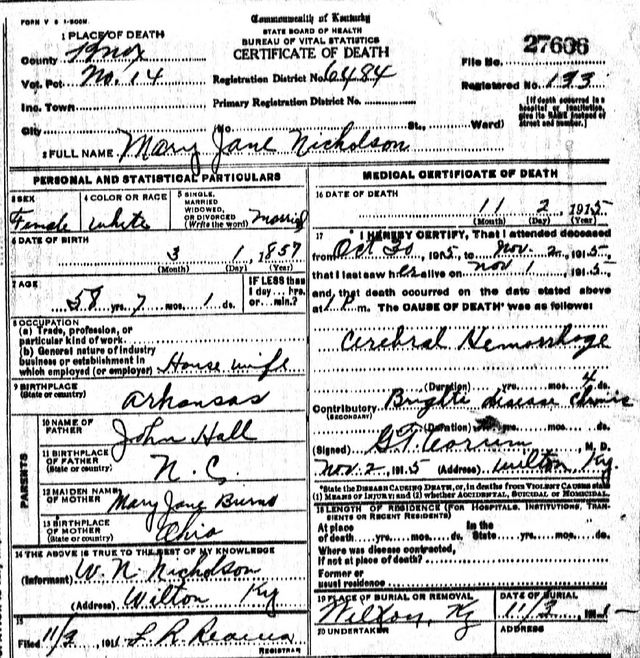 FORM V S 1-500M.
Commonwealth of Kentucky
STATE BOARD OF HEALTH
BUREAU OF VITAL STATISTICS
CERTIFICATE OF DEATH
1 PLACE OF DEATH
County Knox
Vot. Pct. No. 14
Inc. Town
City
Registration District No. 6484
Primary Registration District No.
27606
File No.
Registered No. 133
[If death occurred in a hospital or institution, give its NAME instead of street and number.]
No. St., Ward)
2 FULL NAME Mary Jane Nicholson
PERSONAL AND STATISTICAL PARTICULARS
3 SEX
Female
4 COLOR OR RACE
White
5 SINGLE, MARRIED WIDOWED, OR DIVORCED (Write the word) Married
6 DATE OF BIRTH
3 1, 1857
(Month) (Day) (Year)
7 AGE
58 yrs. 7 mos. 1 ds.
IF LESS than 1 day... hrs. or... min.?
8 OCCUPATION
(a) Trade, profession, or particular kind of work
(b) General nature of industry business or establishment in which employed (or employer) House wife
9 BIRTHPLACE
(State or country) Arkansas
PARENTS
10 NAME OF FATHER John Hall
11 BIRTHPLACE OF FATHER (State or country) N. C
12 MAIDEN NAME OF MOTHER Mary Jane Burns
13 BIRTHPLACE OF MOTHER (State or country) Ohio
14 THE ABOVE IS TRUE TO THE BEST OF MY KNOWLEDGE
(Informant) W. N. Nicholson
(Address) Wilton Ky
15
Filed 11/3, 191
REGISTRAR
MEDICAL CERTIFICATE OF DEATH
16 DATE OF DEATH
11 2, 1915
(Month) (Day) (Year)
17 I HEREBY CERTIFY, That I attended deceased
from Oct 30, 1915, to Nov. 2, 1915,
that I last saw her alive on Nov 1, 1915,
and, that death occurred on the date stated above
at 1 P. m. The CAUSE OF DEATH* was as follows:
Cerebral Hemorrhage
(Duration) yrs. mos. 4 ds.
Contributory Brights disease Chronic
(SECONDARY)
(Duration) yrs. mos. ds.
(Signed) G. T. Corum, M. D.
Nov. 2, 1915 (Address) Wilton Ky.
*State the DISEASE CAUSING DEATH, or, in deaths from VIOLENT CAUSES state
(1) MEANS OF INJURY; and (2) whether ACCIDENTAL, SUICIDAL or HOMICIDAL.
18 LENGTH OF RESIDENCE (FOR HOSPITALS, INSTITUTIONS, TRANSIENTS OR RECENT RESIDENTS)
At place of death yrs. mos. ds. In the State yrs. mos. ds.
Where was disease contracted,
if not at place of death?
Former or
usual residence
19 PLACE OF BURIAL OR REMOVAL
Wilton, Ky
DATE OF BURIAL
11/3, 191
20 UNDERTAKER
ADDRESS